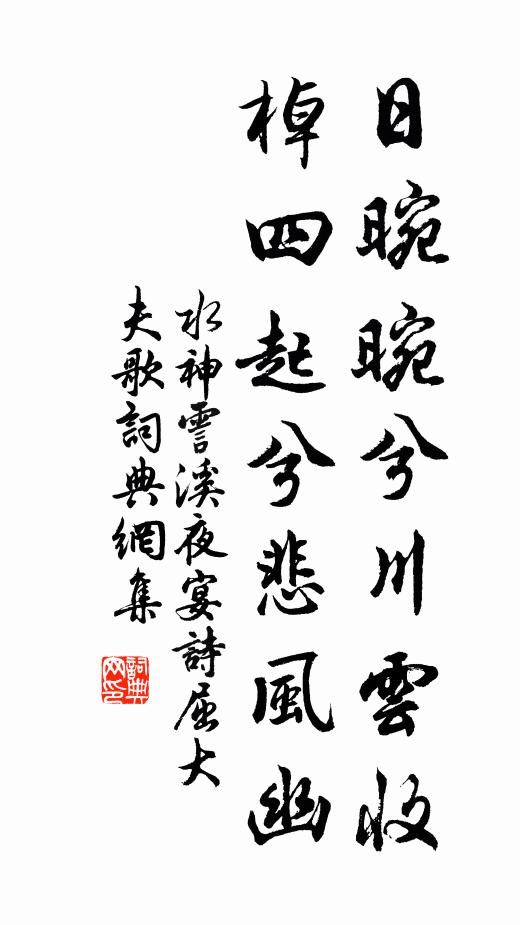 日晼晼兮川雲收
棹四起兮悲風幽
水神雩溪夜宴詩屈大
夫歌詞典網集
詞典網印